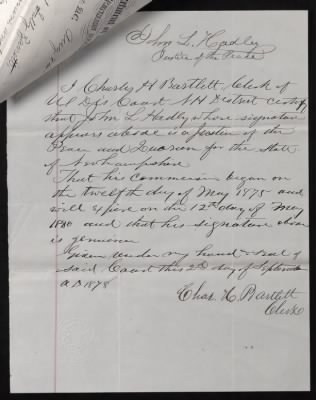 John L. Hadley
Justice of the Peace
I Charles H Bartlett Clerk of
U S Dis Court NH District Certify
that John L Hadley whose signature
appears above is a Justice of the
Peace and Quorum for the State
of New Hampshire
That his Commission began on
the twelfth day of May 1875 and
will expire on the 12th day of May
1880 and that his signature above
is genuine
Given under my hand & Seal of
said Court this 2d day of September
A D 1878
Chas. H. Bartlett
Clerk